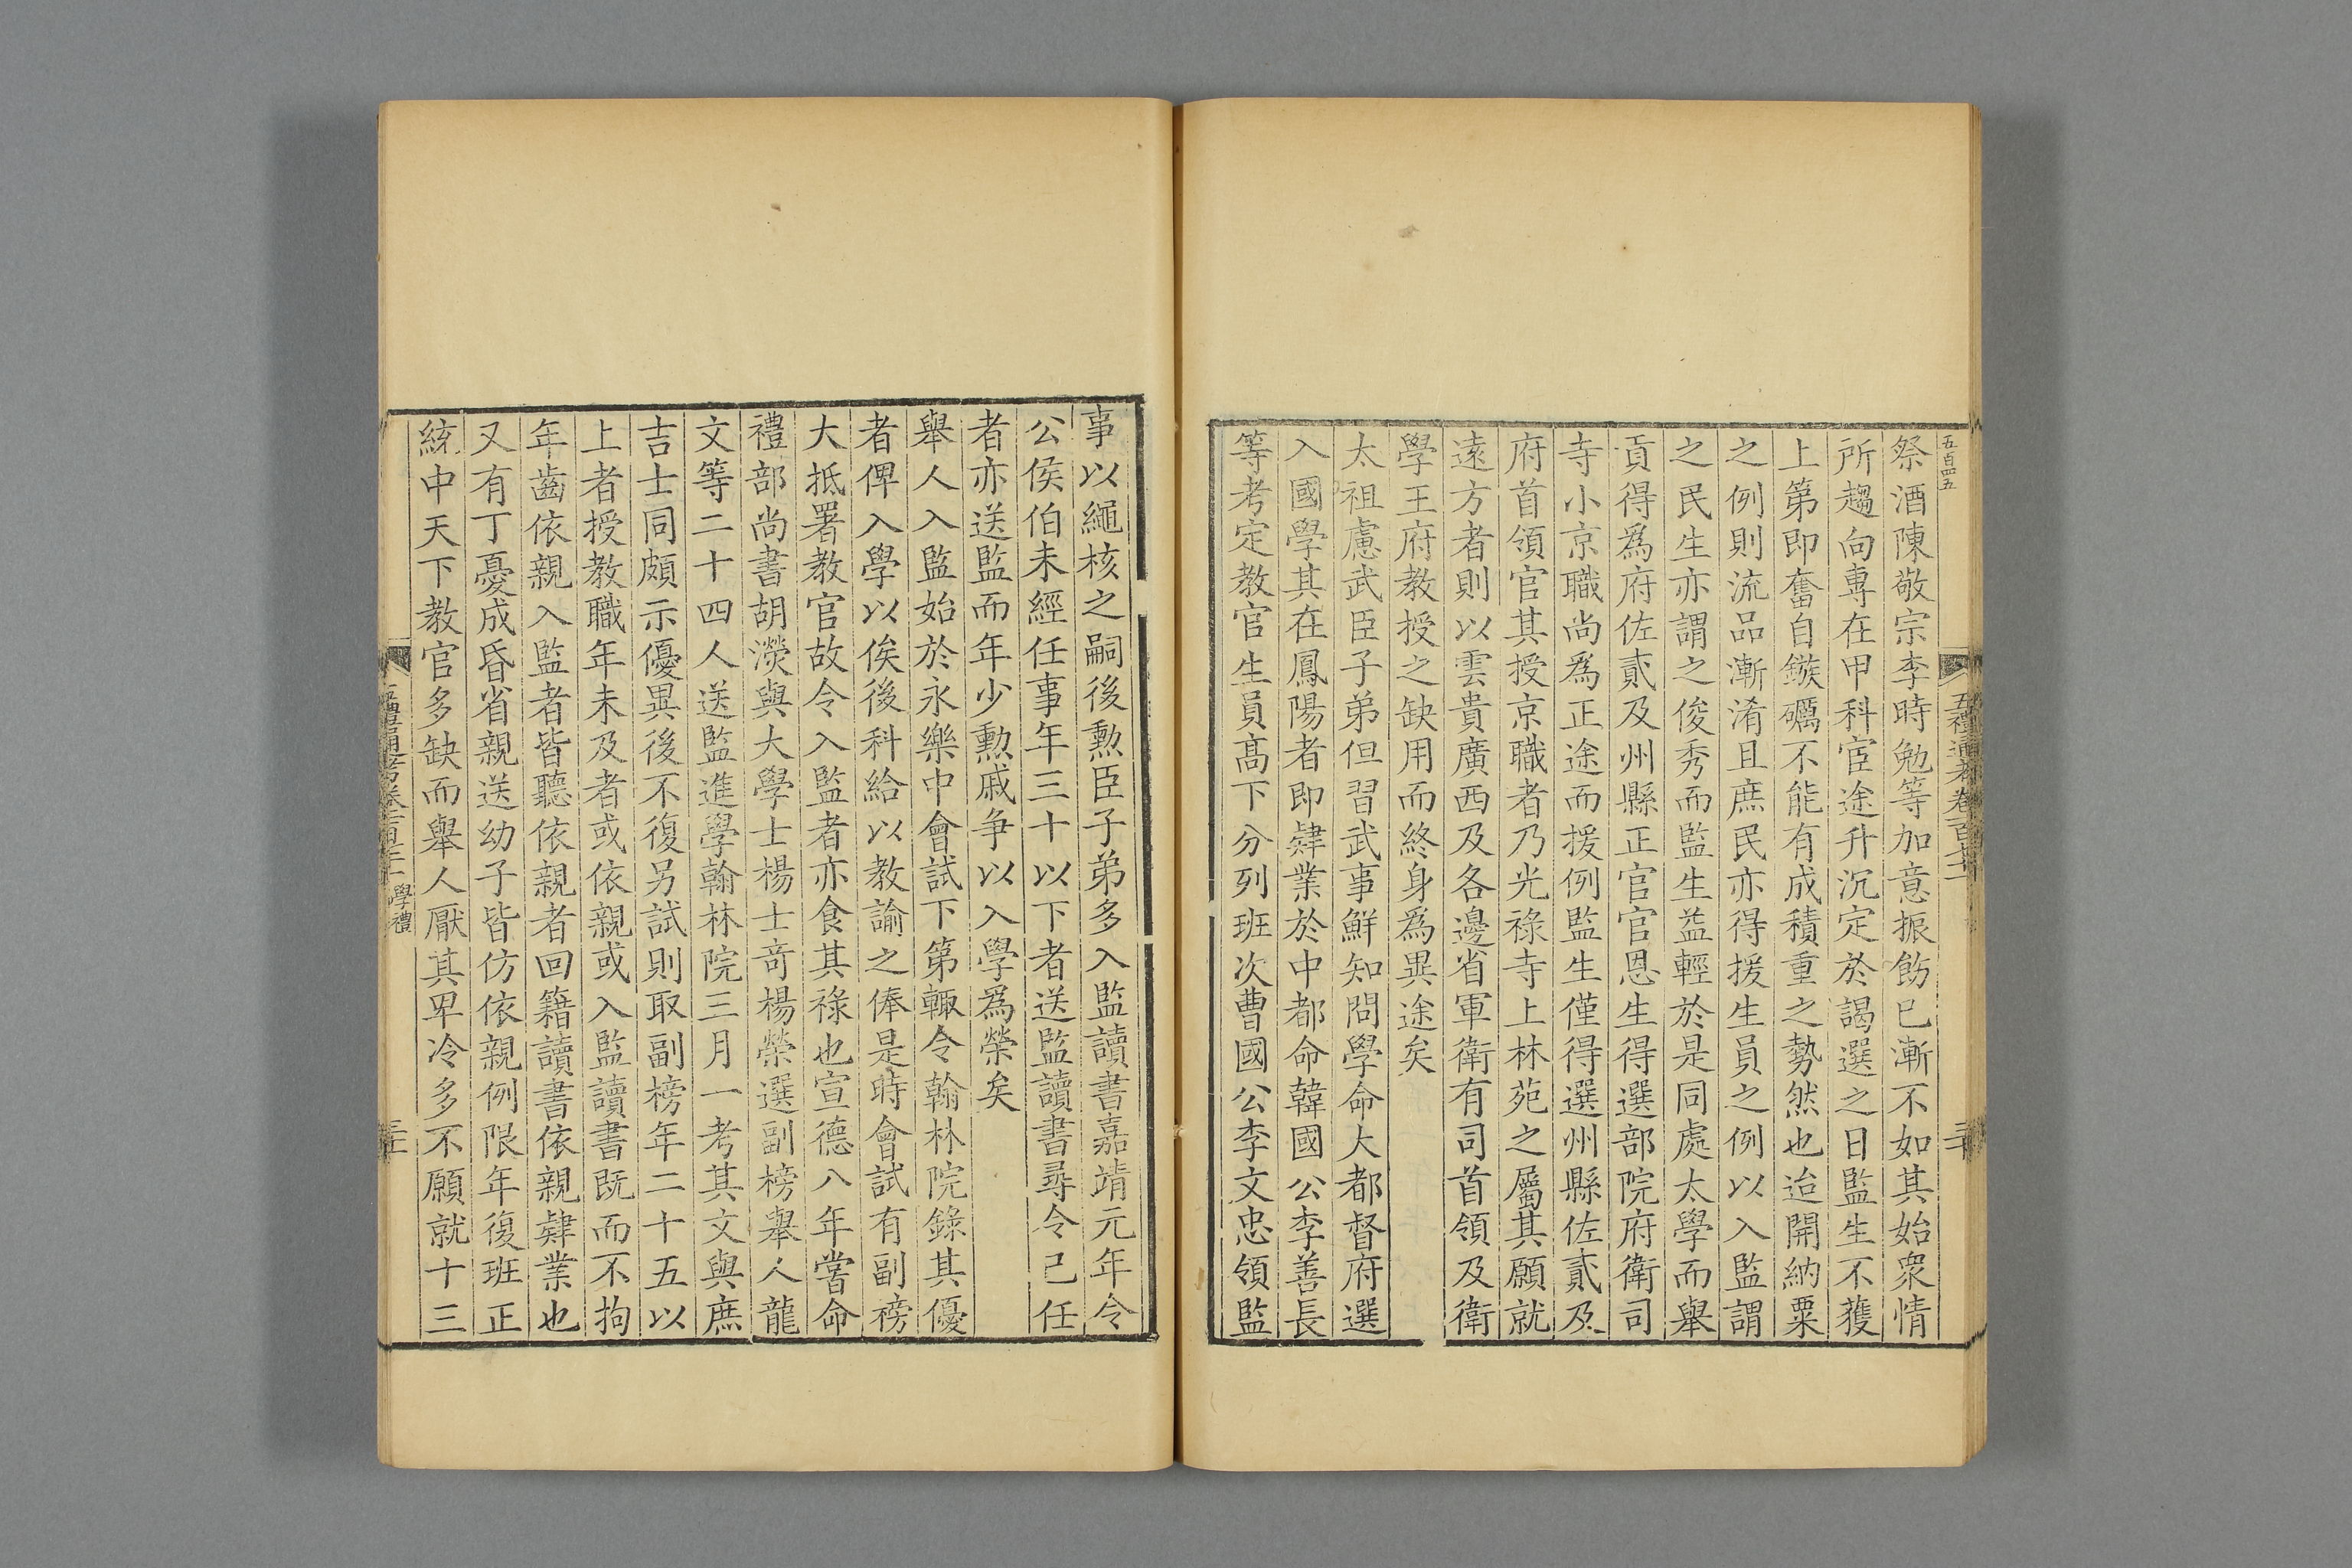 五百四五
五禮通考卷一百七十一
祭酒陳敬宗李時勉等加意振飭已漸不如其始衆情
所趨向專在甲科宦途升沉定於謁選之日監生不獲
上第即奮自鏃礪不能有成積重之勢然也迨開納粟
之例則流品漸淆且庶民亦得援生員之例以入監謂
之民生亦謂之俊秀而監生益輕於是同處太學而舉
貢得爲府佐貳及州縣正官官恩生得選部院府衛司
寺小京職尚爲正途而援例監生僅得選州縣佐貳及
府首領官其授京職者乃光祿寺上林苑之屬其願就
遠方者則以雲貴廣西及各邊省軍衛有司首領及衛
學王府教授之缺用而終身爲異途矣
太祖慮武臣子弟但習武事鮮知問學命大都督府選
入國學其在鳳陽者即肄業於中都命韓國公李善長
等考定教官生員高下分列班次曹國公李文忠領監
事以繩核之嗣後勲臣子弟多入監讀書嘉靖元年令
公侯伯未經任事年三十以下者送監讀書尋令已任
者亦送監而年少勲戚争以入學爲榮矣
舉人入監始於永樂中會試下第輒令翰林院錄其優
者俾入學以俟後科給以教諭之俸是時會試有副榜
大抵署教官故令入監者亦食其祿也宣德八年嘗命
禮部尚書胡濙與大學士楊士奇楊榮選副榜舉人龍
文等二十四人送監進學翰林院三月一考其文與庶
吉士同頗示優異後不復另試則取副榜年二十五以
上者授教職年未及者或依親或入監讀書既而不拘
年齒依親入監者皆聽依親者回籍讀書依親肄業也
又有丁憂成昏省親送幼子皆仿依親例限年復班正
統中天下教官多缺而舉人厭其卑冷多不願就十三
學禮